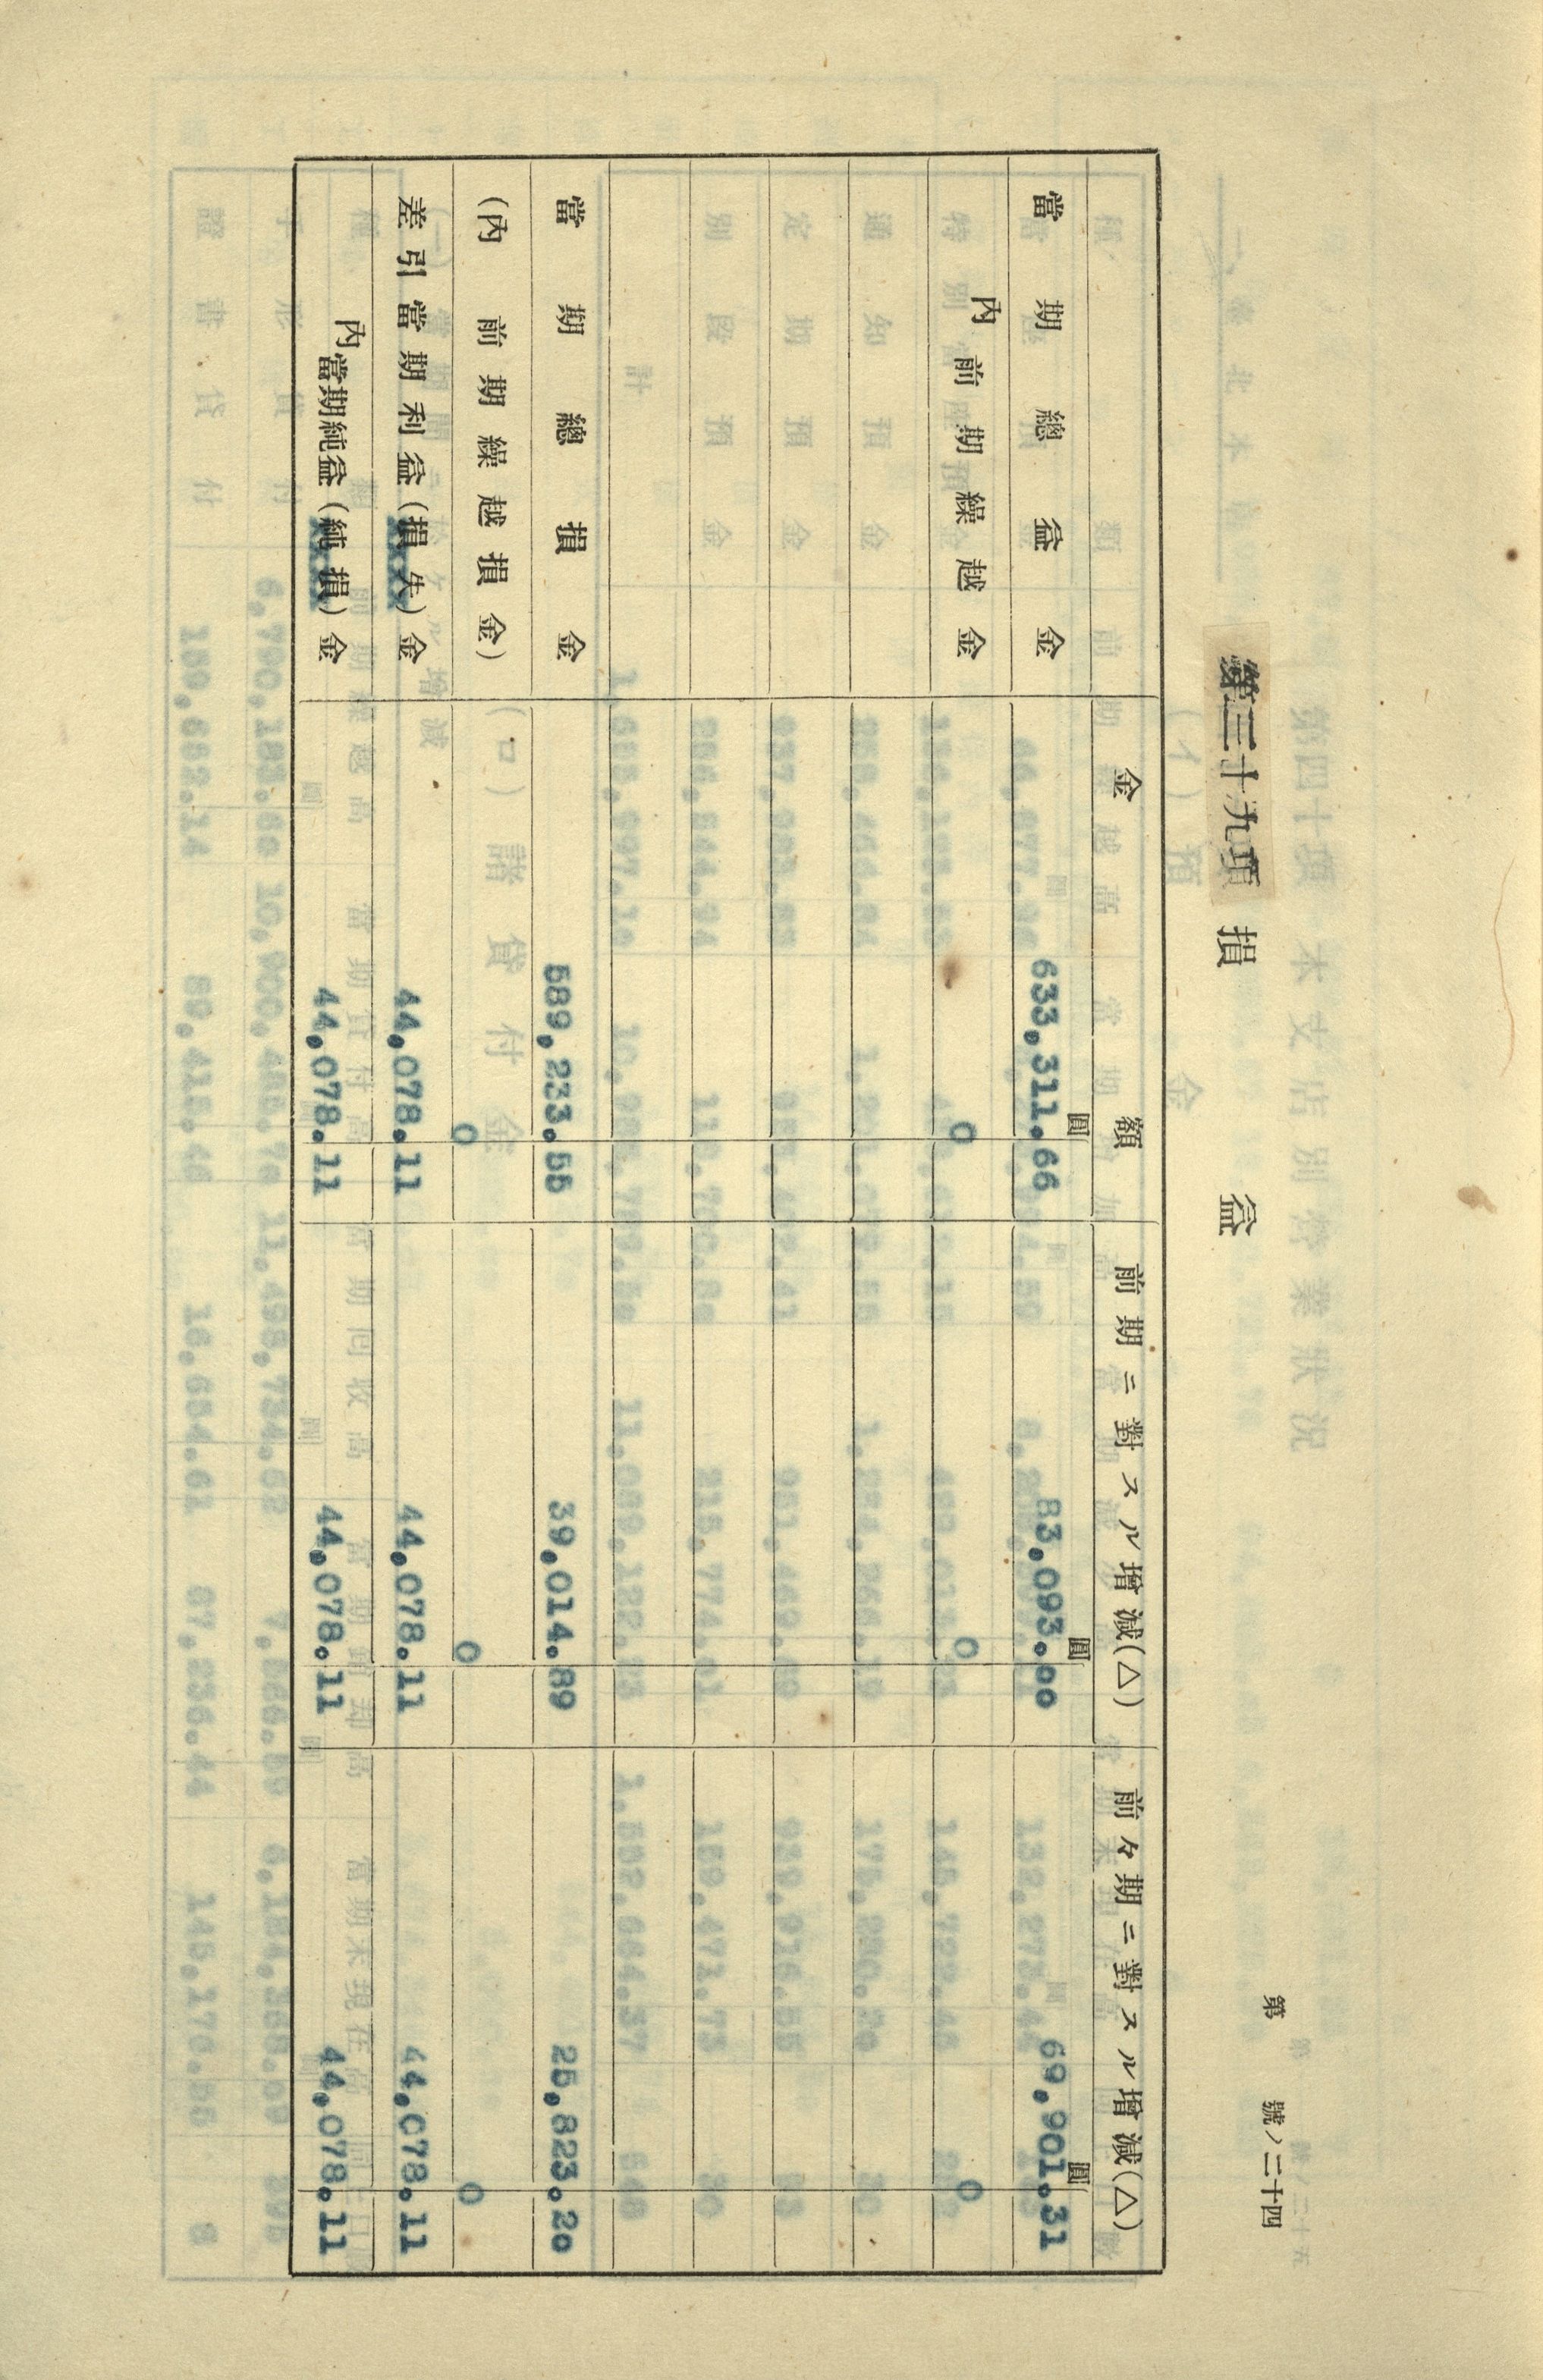 第 號ノ二十四
第三十九項 損 益
金 額 前期ニ對スル增減(△) 前々期ニ對スル增減(△)
圓 圓 圓
當期總益金 633,311.66 83,093.00 69,901.31
內前期繰越金 0 0 0
當期總損金 589,233.55 39,014.89 25,823.20
(內前期繰越損金) 0 0 0
差引當期利益(損失)金 44,078.11 44,078.11 44,078.11
內當期純益(純損)金 44,078.11 44,078.11 44,078.11